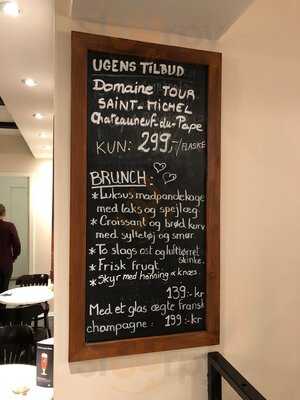 UGENS TILBUD
Domaine TOUR
SAINT-MICHEL
Chateauneuf-du-Pape
KUN: 299,-/FLASKE
BRUNCH:
* Luksus madpandekage
med laks og spejlæg
* Croissant og brød kurv
med syltetøj og smør
* To slags ost og lufttørret
skinke.
* Frisk frugt.
* Skyr med honning & knas.
139.-kr
Med et glas ægte fransk
champagne: 199.-kr